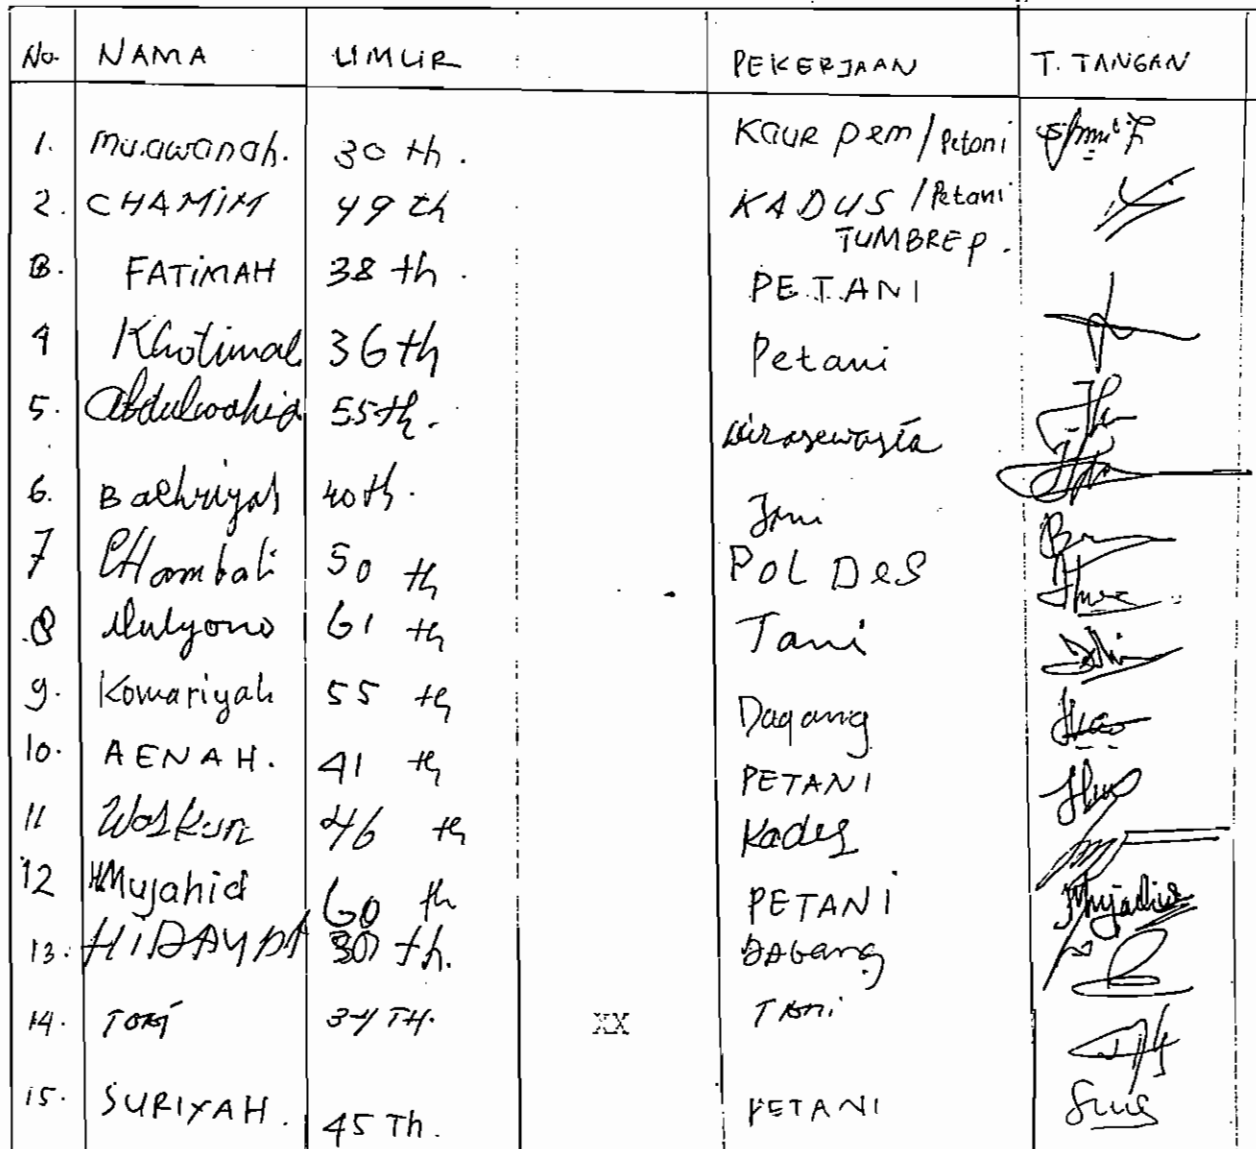 No. NAMA UMUR PEKERJAAN T. TANGAN
1. Mu.awanah. 30 th. Kaur pem/Petani
2. CHAMIM 49 th KADUS/Petani
TUMBREP.
3. FATIMAH 38 th. PETANI
4 Khotimah 36 th Petani
5. Abdulwahid 55 th. Wiraswasta
6. Bachriyah 40 th. Tani
7 CHambali 50 th POL Des
8 Mulyono 61 th Tani
9. Komariyah 55 th Dagang
10. AENAH. 41 th PETANI
11 Waskun 46 th Kades
12 HMujahid 60 th PETANI Mujahid
13. HiDAYAt 30 th. DAGang
14. 34 TH. XX TAni
15. SURIYAH. 45 Th. PETANI